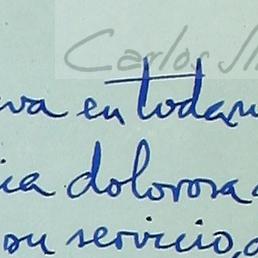 Carlos
va en toda
ia dolorosa
su servicio,